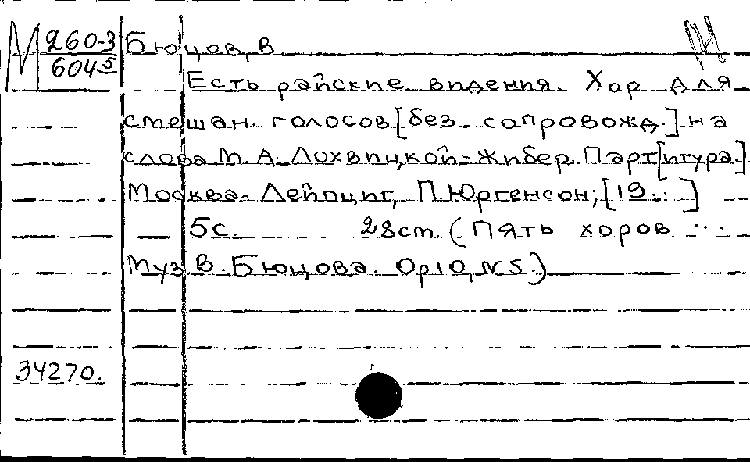 М 260-3
6045
Бюцов, В
Есть райские видения. Хор для
смешан. голосов [без. сопровожд.] на
слова М. А. Лохвицкой-Жибер. Парт[итура.]
Москва-Лейпциг, П. Юргенсон, [19..]
5с. 28см. (Пять хоров ...
Муз В. Бюцова. Op10, №5.)
34270.
М